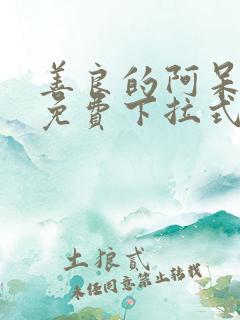 善良的阿呆
免費下拉式
土狼貳
未经同意禁止转载